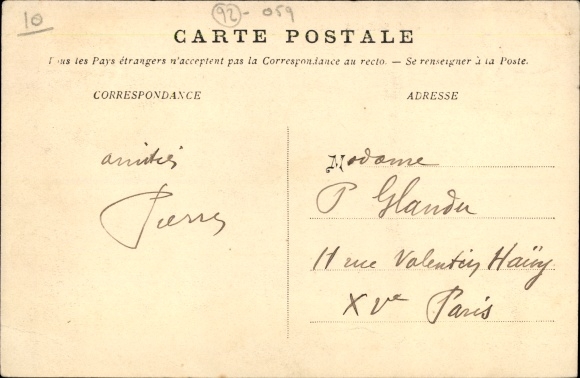 10
92-059
CARTE POSTALE
Tous les Pays étrangers n'acceptent pas la Correspondance au recto. — Se renseigner à la Poste.
CORRESPONDANCE
ADRESSE
amitiés
Pierre
Madame
P Glandu
11 rue Valentin Haüy
XVe Paris